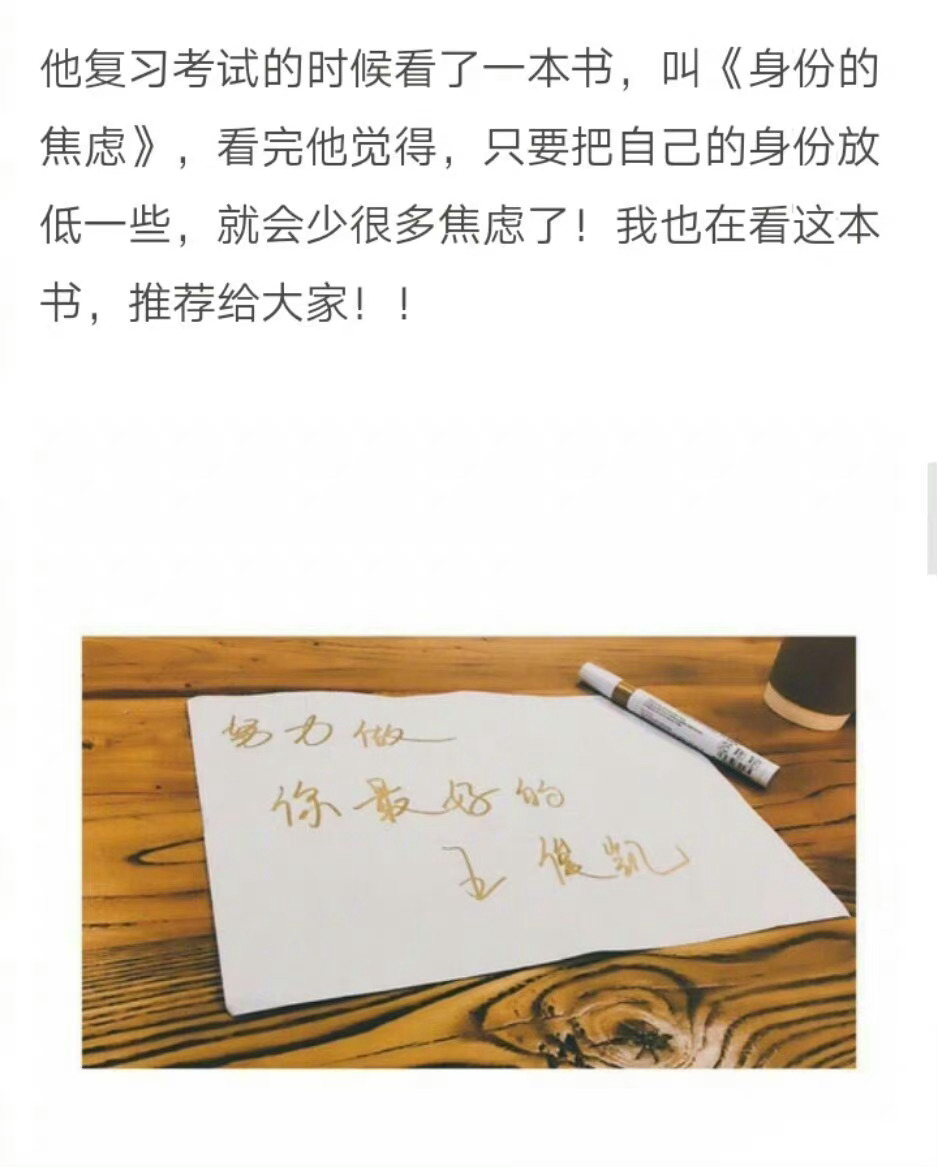 他复习考试的时候看了一本书，叫《身份的
焦虑》，看完他觉得，只要把自己的身份放
低一些，就会少很多焦虑了！我也在看这本
书，推荐给大家！！
努力做
你最好的
王俊凯